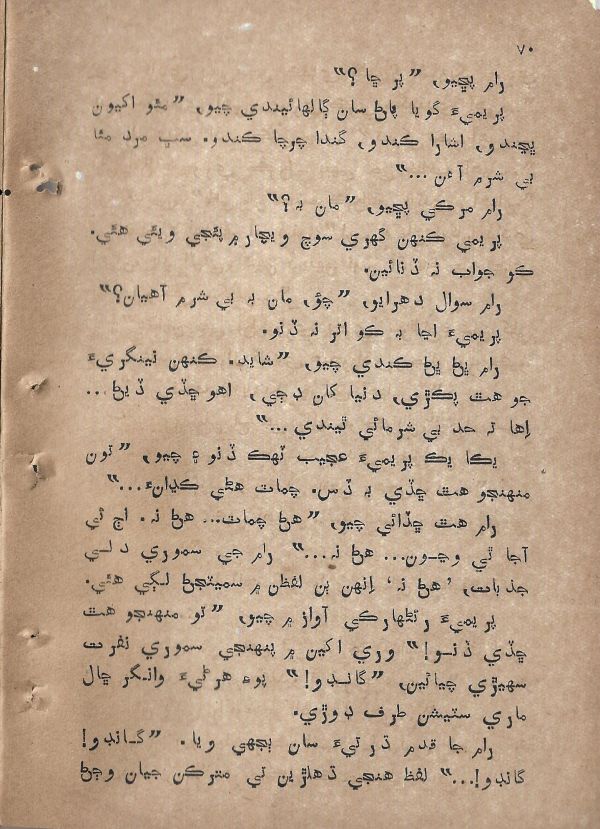 ٧٠
رام پڇيو، ”پر ڇا؟“
پريميءَ گويا پاڻ سان ڳالهائيندي چيو، ”مٿو اکيون
ڀڃيندو، اشارا ڪندو، گندا چرچا ڪندو. سڀ مرد مئا
بي شرم آهن...“
رام مرڪي پڇيو، ”مان به؟“
پريمي ڪنهن گهري سوچ ويچار ۾ پئجي ويئي هئي.
ڪو جواب نه ڏنائين.
رام سوال دهرايو، ”چؤ، مان به بي شرم آهيان؟“
پريميءَ اڃا به ڪو اتر نه ڏنو.
رام ڀڻ ڀڻ ڪندي چيو، ”شايد. ڪنهن نينگريءَ
جو هٿ پڪڙي، دنيا کان ڊڄي، اهو ڇڏي ڏيڻ...
اِها ته حد بي شرمائي ٿيندي...“
يڪا يڪ پريميءَ عجيب ٽهڪ ڏنو ۽ چيو، ”تون
منهنجو هٿ ڇڏي به ڏس. چماٽ هڻي ڪڍانءِ...“
رام هٿ ڇڏائي چيو، ”هڻ چماٽ... هڻ نه. اڄ ئي
آجا ٿي وڃون... هڻ نه...“ رام جي سموري دلي
جذبات، ’هڻ نه‘ اِنهن ٻن لفظن ۾ سميٽجڻ لڳي هئي.
پريميءَ رئڻهارڪي آواز ۾ چيو، ”تو منهنجو هٿ
ڇڏي ڏنو!“ وري اکين ۾ پنهنجي سموري نفرت
سهيڙي چيائين، ”گانڊو!“ پوءِ هرڻيءَ وانگر ڇال
ماري سٽيشن طرف ڊوڙي.
رام جا قدم ڌرتيءَ سان ٻجهي ويا. ”گانڊو!
گانڊو!...“ لفظ هنجي ڌهلڙين تي مترڪن جيان وڄڻ